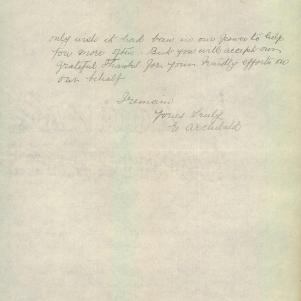 only wish it had been in our power to help
you more often. But you will accept our
grateful thanks for your kindly efforts on
our behalf
I remain
Yours Truly
E Archibald